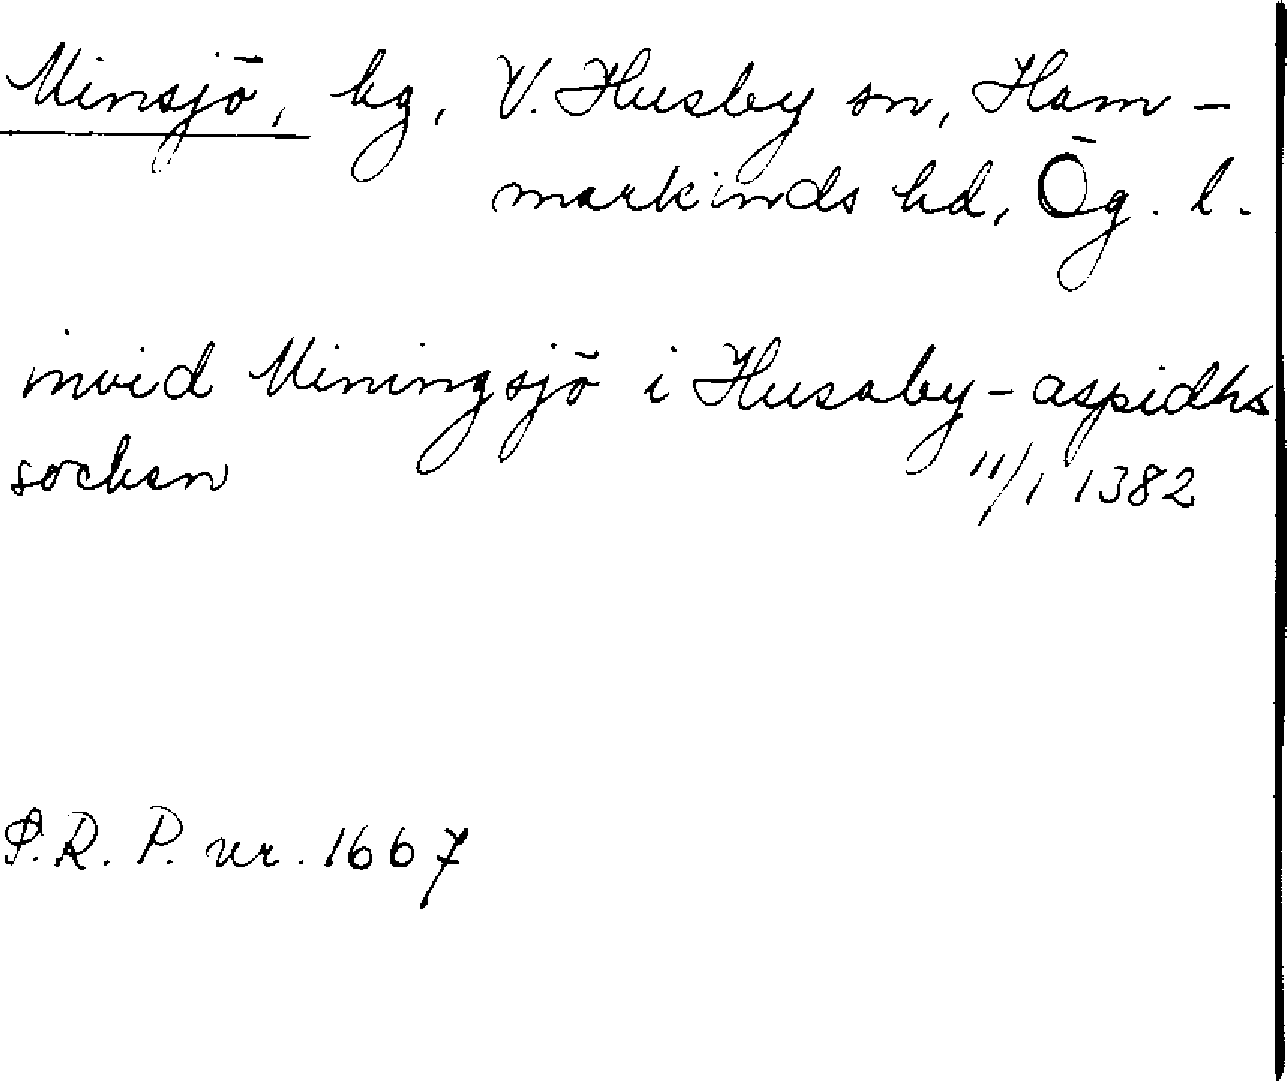 Minsjö, hg, V. Husby sn, Ham-
markinds hd, Ög. l.
invid Miningsjö i Husaby-aspidhs
socken 11/1 1382
S.R.P. nr. 1667